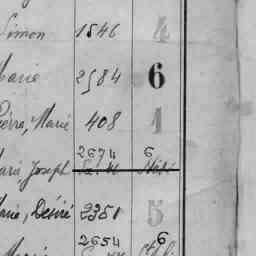 Simon 1546 4
Marie 2584 6
Pierre, Marie 408 1
2674 6
Marie, Joseph
Marie, Désiré 2351 5
2654 6
Marie